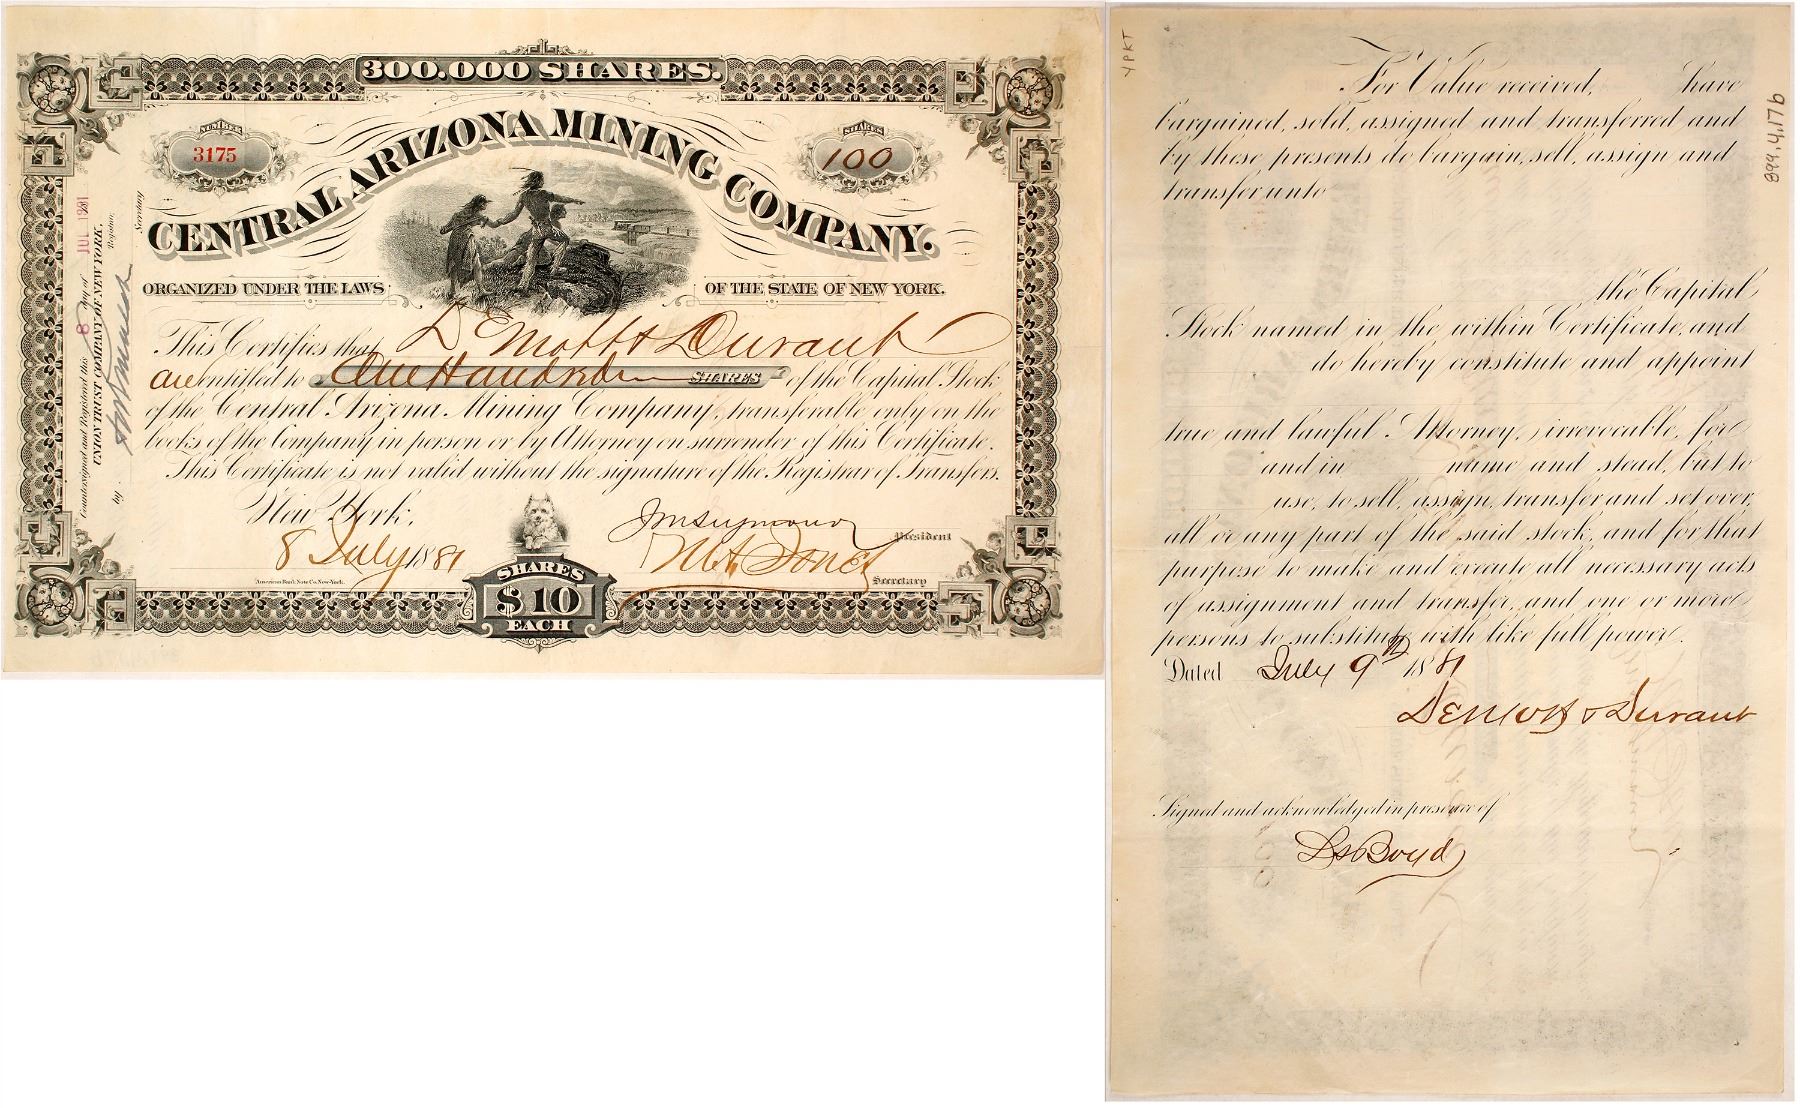 300.000 SHARES.
NUMBER
3175
SHARES
100
CENTRAL ARIZONA MINING COMPANY.
ORGANIZED UNDER THE LAWS OF THE STATE OF NEW YORK.
This Certifies that DeMott & Durant
are entitled to One Hundred SHARES of the Capital Stock
of the Central Arizona Mining Company, transferable only on the
books of the Company in person or by Attorney on surrender of this Certificate.
This Certificate is not valid without the signature of the Registrar of Transfers.
New York,
8 July 1881
J M Seymour President
Secretary
American Bank Note Co. New-York.
SHARES
$10
EACH
Countersigned and Registered this 8 Day of JUL 1881
UNION TRUST COMPANY OF NEW YORK, Registrar,
by Secretary
4PKT
899.4.4176
For Value received, have
bargained, sold, assigned and transferred and
by these presents do bargain, sell, assign and
transfer unto
the Capital
Stock named in the within Certificate, and
do hereby constitute and appoint
true and lawful Attorney, irrevocable, for
and in name and stead, but to
use, to sell, assign, transfer and set over,
all or any part of the said stock, and for that
purpose to make and execute all necessary acts
of assignment and transfer, and one or more
persons to substitute with like full power.
Dated July 9th 1881
DeMott & Durant
Signed and acknowledged in presence of
Boyd